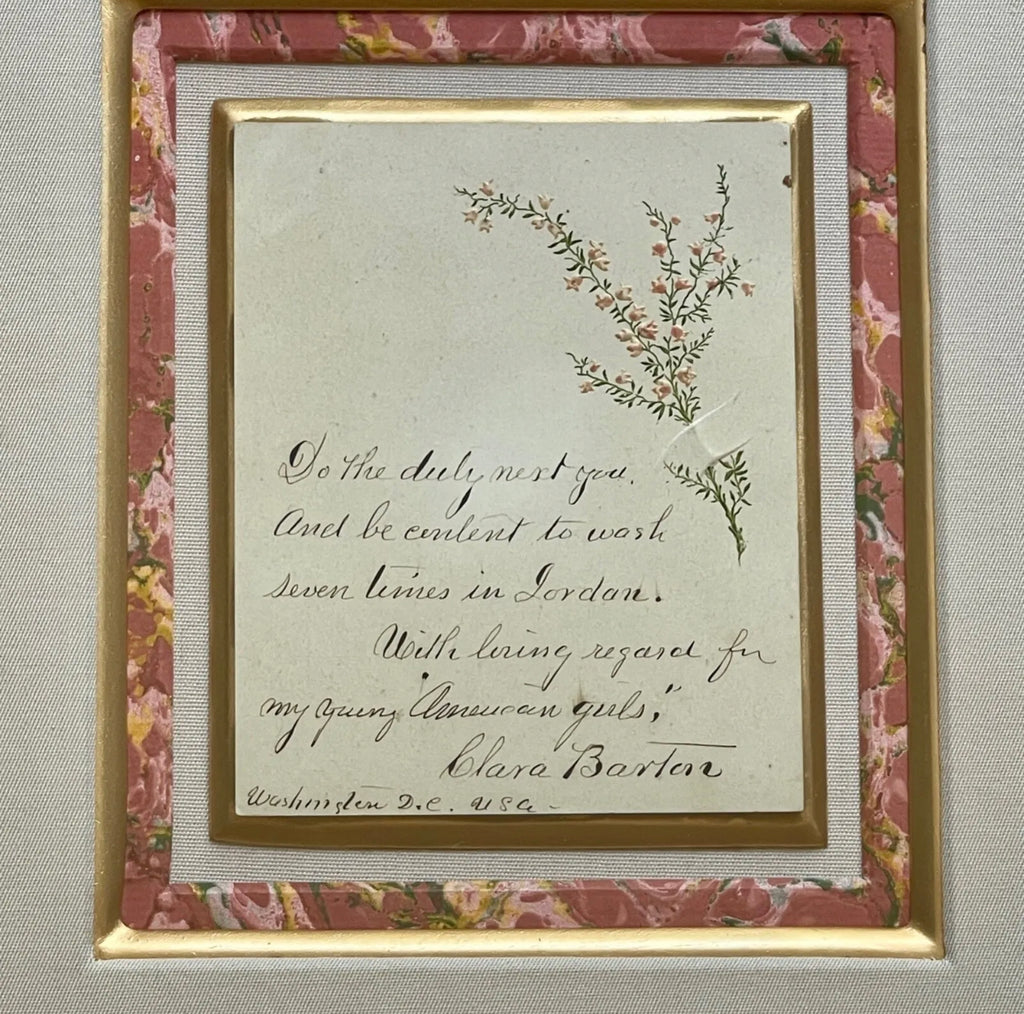 Do the duty next you.
And be content to wash
seven times in Jordan.
With loving regard for
my young "American girls,"
Clara Barton
Washington D.C. USA-